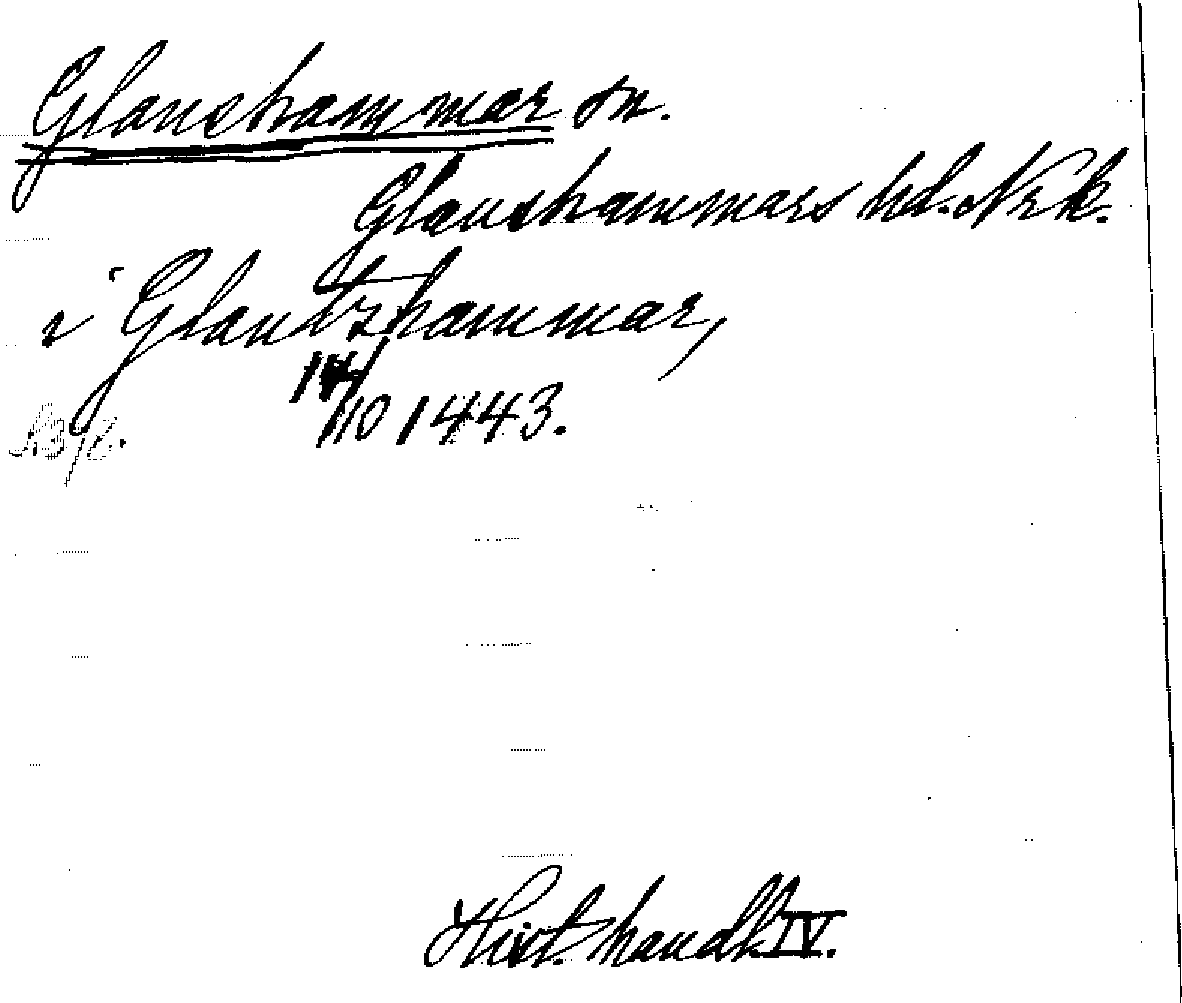 Glanshammar sn.
Glanshammars hd. Nrk.
i Glantzhammar,
14/10 1443.
Hist. handl. IV.